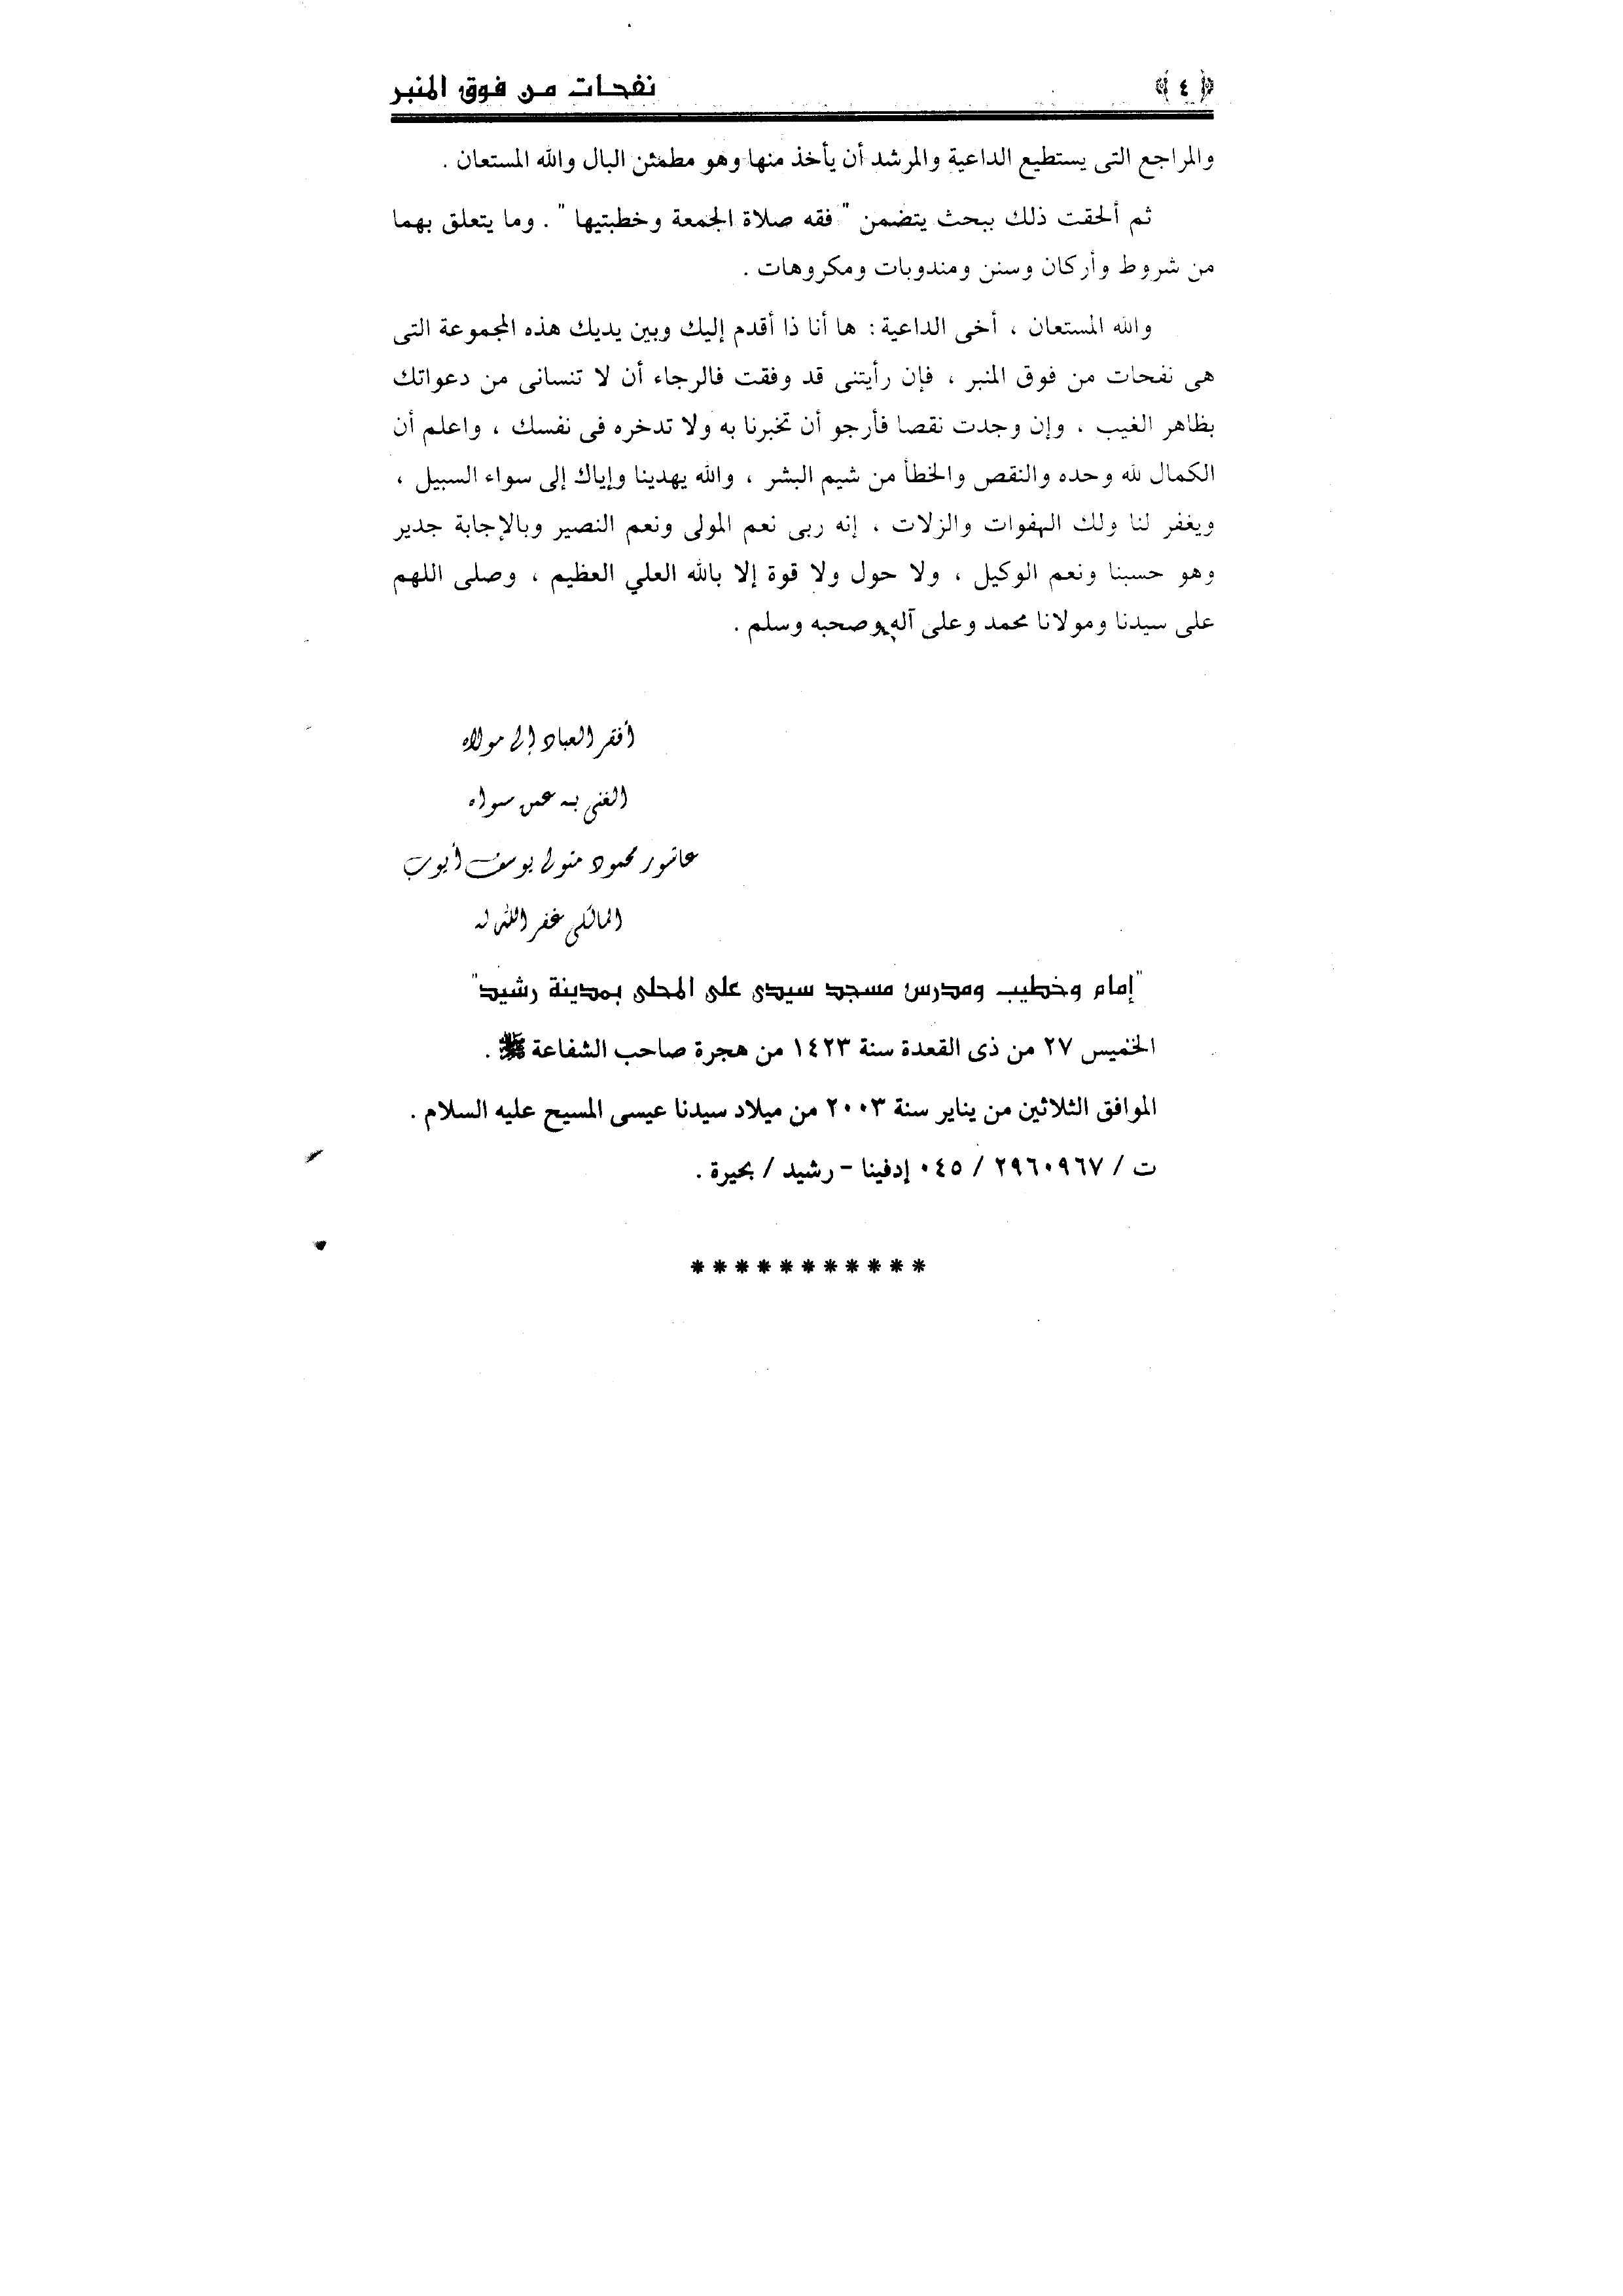 ﴿ ٤ ﴾ نفحات من فوق المنبر
والمراجع التى يستطيع الداعية والمرشد أن يأخذ منها وهو مطمئن البال والله المستعان .
ثم ألحقت ذلك ببحث يتضمن " فقه صلاة الجمعة وخطبتيها " . وما يتعلق بهما
من شروط وأركان وسنن ومندوبات ومكروهات .
والله المستعان ، أخى الداعية : ها أنا ذا أقدم إليك وبين يديك هذه المجموعة التى
هى نفحات من فوق المنبر ، فإن رأيتنى قد وفقت فالرجاء أن لا تنسانى من دعواتك
بظاهر الغيب ، وإن وجدت نقصا فأرجو أن تخبرنا به ولا تدخره فى نفسك ، واعلم أن
الكمال لله وحده والنقص والخطأ من شيم البشر ، والله يهدينا وإياك إلى سواء السبيل ،
ويغفر لنا ولك الهفوات والزلات ، إنه ربى نعم المولى ونعم النصير وبالإجابة جدير
وهو حسبنا ونعم الوكيل ، ولا حول ولا قوة إلا بالله العلي العظيم ، وصلى اللهم
على سيدنا ومولانا محمد وعلى آله وصحبه وسلم .
أفقر العباد إلى مولاه
الغنى به عمن سواه
عاشور محمود متولى يوسف أيوب
المالكى غفر الله له
"إمام وخطيب ومدرس مسجد سيدى على المحلى بمدينة رشيد"
الخميس ٢٧ من ذى القعدة سنة ١٤٢٣ من هجرة صاحب الشفاعة ﷺ .
الموافق الثلاثين من يناير سنة ٢٠٠٣ من ميلاد سيدنا عيسى المسيح عليه السلام .
ت / ٢٩٦٠٩٦٧ / ٠٤٥ إدفينا - رشيد / بحيرة .
* * * * * * * * * * *